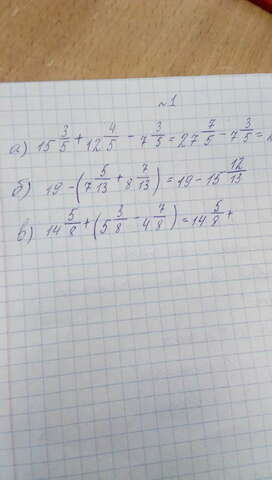 №1
а) 15 3/5 + 12 4/5 - 7 3/5 = 27 7/5 - 7 3/5 = 2
б) 19 - (7 5/13 + 8 7/13) = 19 - 15 12/13
в) 14 5/8 + (5 3/8 - 4 7/8) = 14 5/8 +